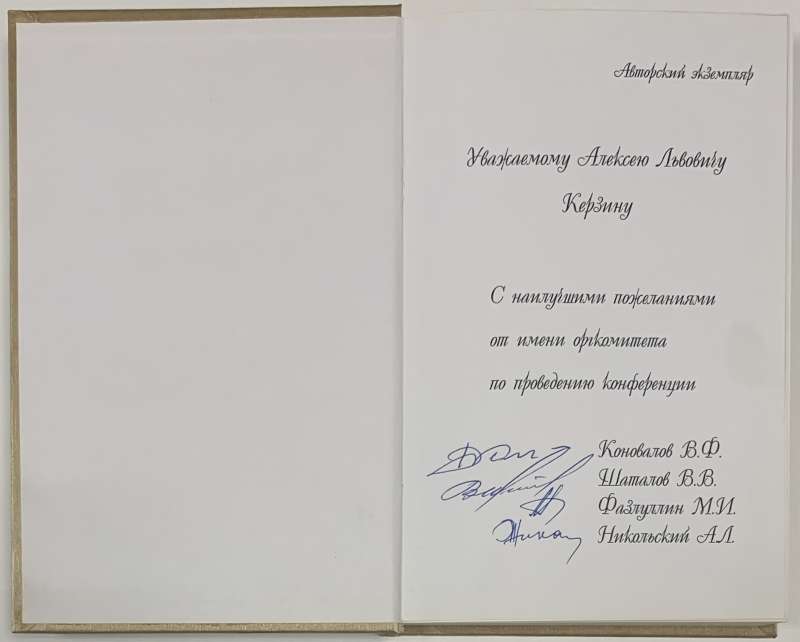 Авторский экземпляр
Уважаемому Алексею Львовичу
Керзину
С наилучшими пожеланиями
от имени оргкомитета
по проведению конференции
Коновалов В.Ф.
Шаталов В.В.
Фазлуллин М.И.
Никольский А.Л.